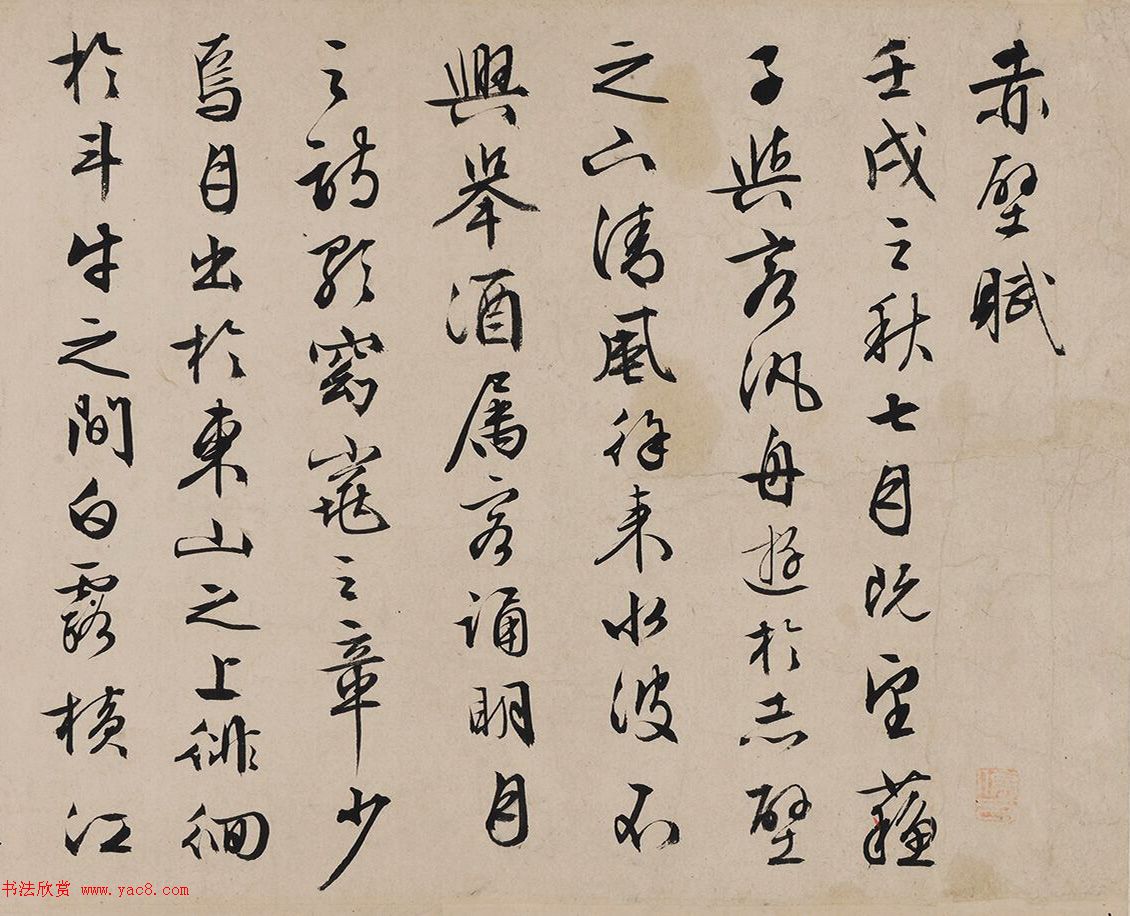 赤壁賦
壬戌之秋七月既望蘇
子與客汎舟遊於赤壁
之下清風徐来水波不
興舉酒属客誦明月
之詩歌窈窕之章少
焉月出於東山之上徘徊
於斗牛之間白露橫江
书法欣赏 www.yac8.com